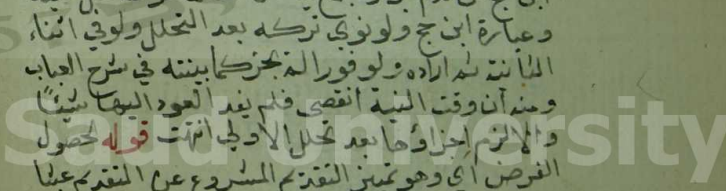 وعبارة ابن حج ولو نوى تركه بعد التحلل ولو في اثناء
الثانية ثم اراده ولو فورا لم يجز كما بينته في شرح العباب
ومنه أن وقت النية انقضى فلم يفد العود اليها شيئا
والا لزم اجزاؤها بعد تحلل الاولى انتهت قوله لحصول
الغرض اي وهو تمييز التقديم المشروع عن التقديم عبثا
Saud University